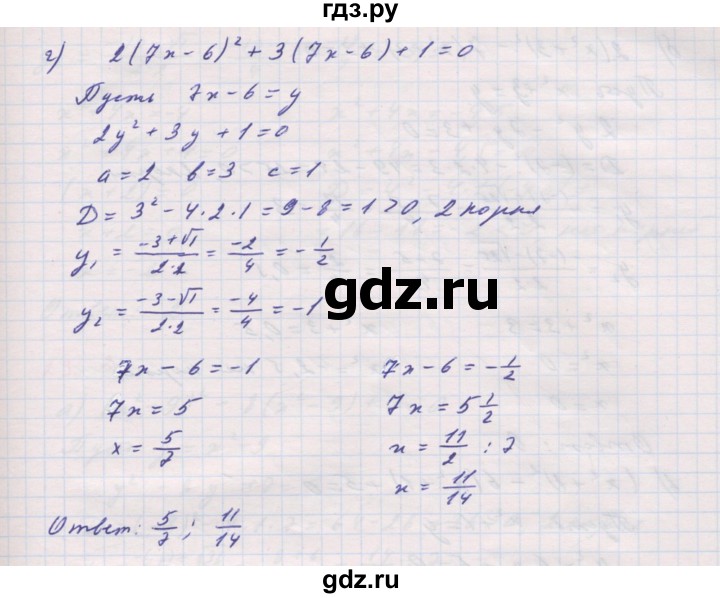 гдз.ру
г) 2(7x-6)² + 3(7x-6) + 1 = 0
Пусть 7x-6 = y
2y² + 3y + 1 = 0
a = 2 b = 3 c = 1
D = 3² - 4·2·1 = 9 - 8 = 1 > 0, 2 корня
y₁ = (-3+√1)/(2·2) = -2/4 = -1/2
y₂ = (-3-√1)/(2·2) = -4/4 = -1
gdz.ru
7x - 6 = -1 7x - 6 = -1/2
7x = 5 7x = 5 1/2
x = 5/7 x = 11/2 : 7
x = 11/14
Ответ: 5/7; 11/14
gdz.ru